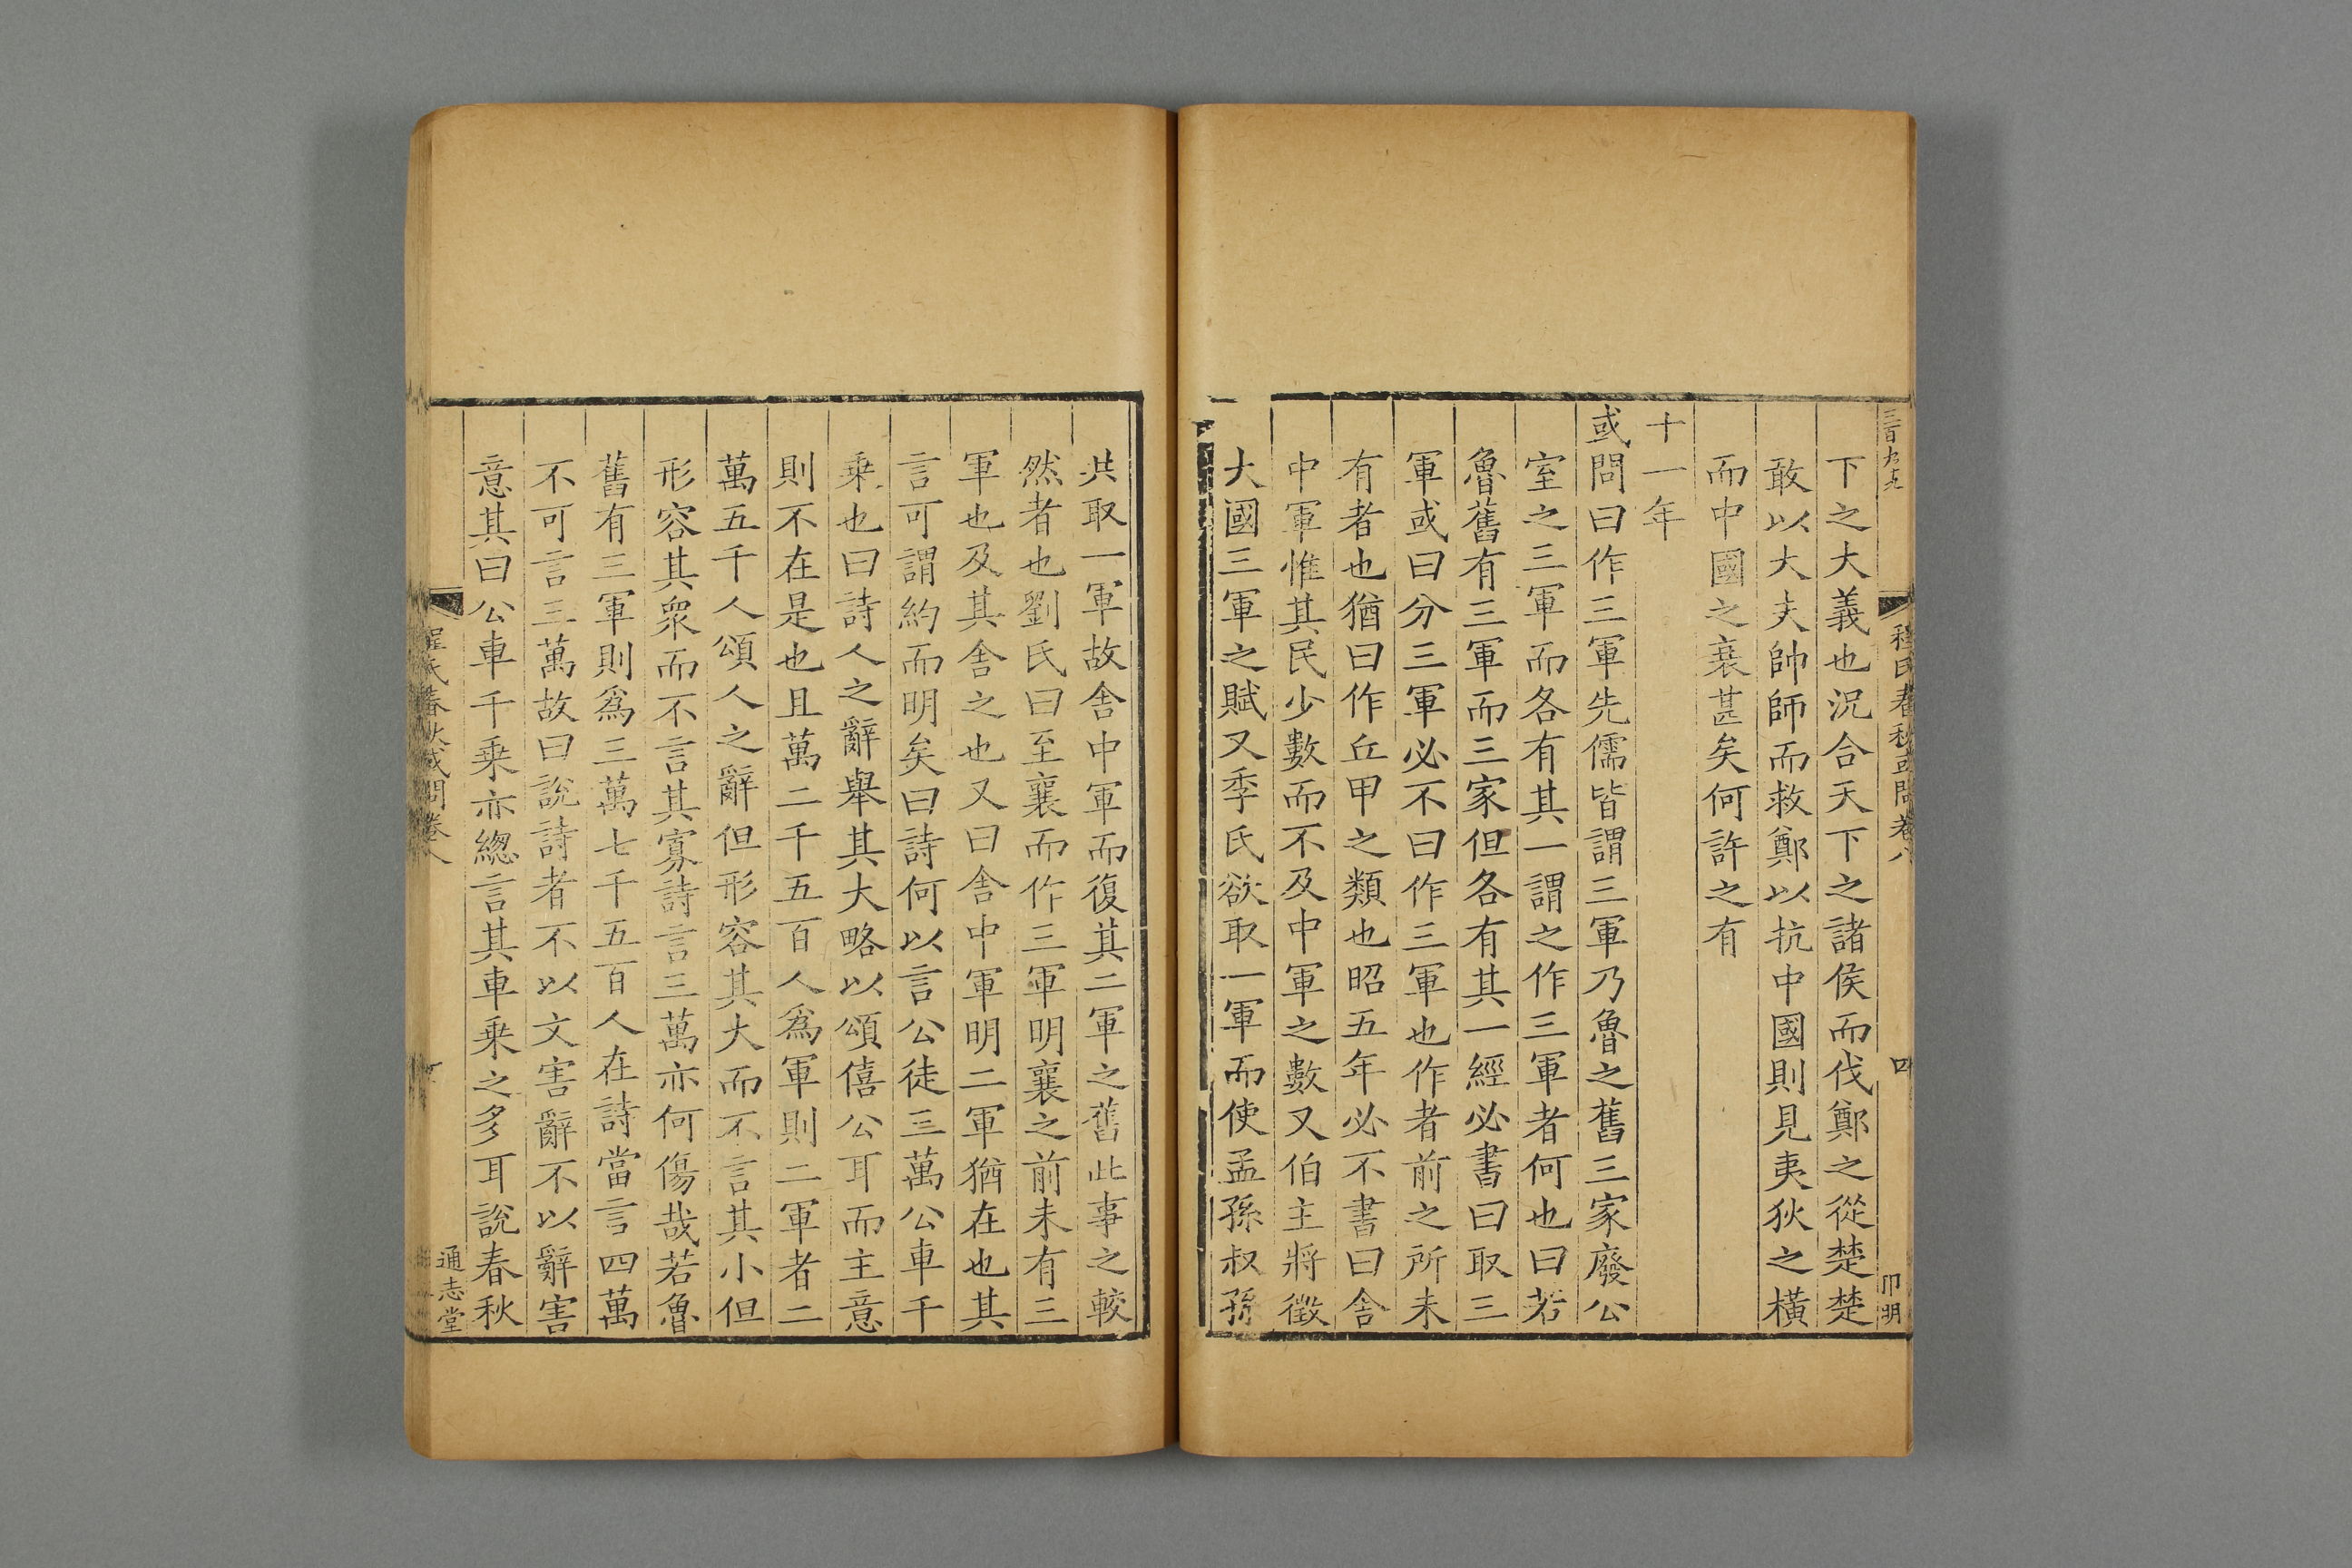 三百九十九
程氏春秋或問卷八
四
卬明
下之大義也況合天下之諸侯而伐鄭之從楚楚
敢以大夫帥師而救鄭以抗中國則見夷狄之橫
而中國之衰甚矣何許之有
十一年
或問曰作三軍先儒皆謂三軍乃魯之舊三家廢公
室之三軍而各有其一謂之作三軍者何也曰若
魯舊有三軍而三家但各有其一經必書曰取三
軍或曰分三軍必不曰作三軍也作者前之所未
有者也猶曰作丘甲之類也昭五年必不書曰舍
中軍惟其民少數而不及中軍之數又伯主將徵
大國三軍之賦又季氏欲取一軍而使孟孫叔孫
共取一軍故舍中軍而復其二軍之舊此事之較
然者也劉氏曰至襄而作三軍明襄之前未有三
軍也及其舍之也又曰舍中軍明二軍猶在也其
言可謂約而明矣曰詩何以言公徒三萬公車千
乗也曰詩人之辭舉其大略以頌僖公耳而主意
則不在是也且萬二千五百人爲軍則二軍者二
萬五千人頌人之辭但形容其大而不言其小但
形容其衆而不言其寡詩言三萬亦何傷哉若魯
舊有三軍則爲三萬七千五百人在詩當言四萬
不可言三萬故曰說詩者不以文害辭不以辭害
意其曰公車千乗亦緫言其車乗之多耳說春秋
程氏春秋或問卷八
通志堂